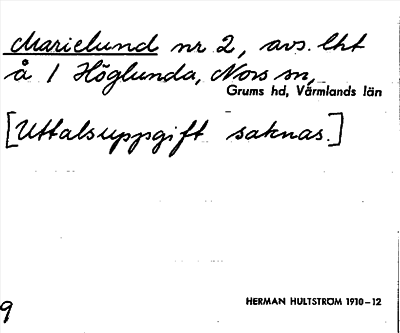 Marielund nr 2, avs. lht
å 1 Höglunda, Nors sn,
Grums hd, Värmlands län
[Uttalsuppgift saknas.]
HERMAN HULTSTRÖM 1910–12
9